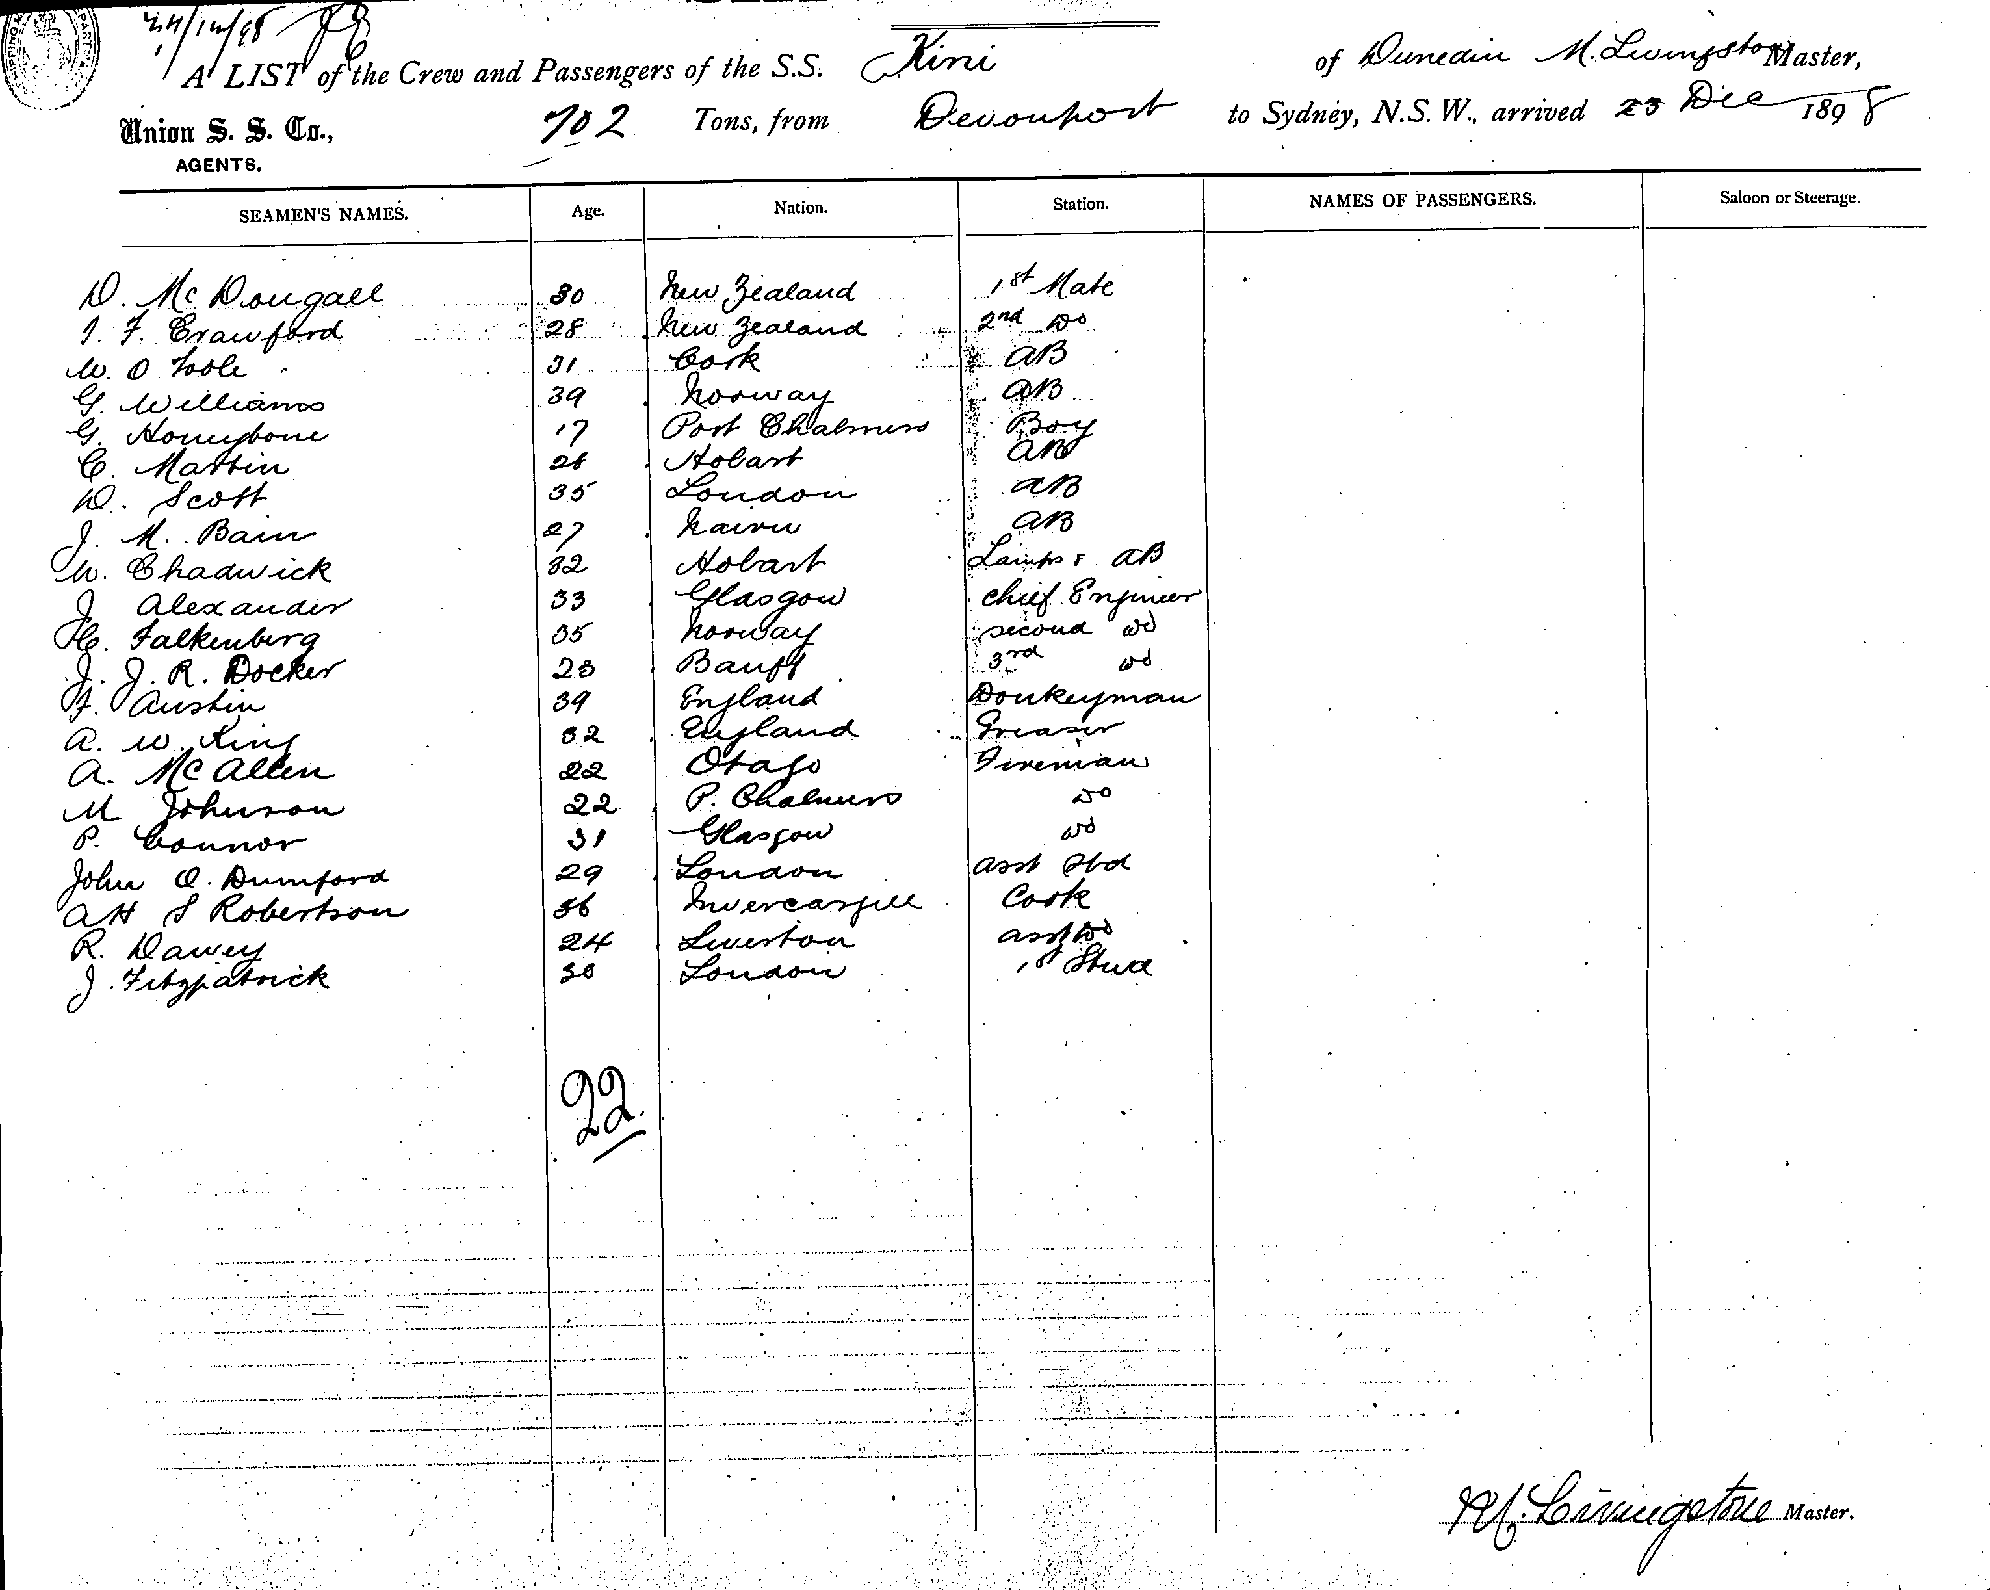 24/12/98
A LIST of the Crew and Passengers of the S.S. Kini of Dunedin M. Livingston Master,
Union S. S. Co., 702 Tons, from Devonport to Sydney, N.S.W., arrived 23 Dec 1898
AGENTS.
SEAMEN'S NAMES. Age. Nation. Station. NAMES OF PASSENGERS. Saloon or Steerage.
D. McDougall 30 New Zealand 1st Mate
I. F. Crawford 28 New Zealand 2nd Do
W. O Toole 31 Cork AB
G. Williams 39 Norway AB
G. Honeybone 17 Port Chalmers Boy
C. Martin 26 Hobart AB
D. Scott 35 London AB
J. M. Bain 27 Nairn AB
W. Chadwick 32 Hobart Lamps & AB
J Alexander 33 Glasgow Chief Engineer
H. Falkenberg 35 Norway second do
J. J. R. Docker 23 Banff 3rd do
F. Austin 39 England Donkeyman
A. W. King 32 England Greaser
A. McAllen 22 Otago Fireman
M Johnson 22 P. Chalmers do
P. Connor 31 Glasgow do
John O. Dumford 29 London Asst Std
A H S Robertson 36 Invercargill Cook
R. Davey 24 Liverton asst do
J. Fitzpatrick 30 London 1st Stwd
22
M. Livingstone Master.